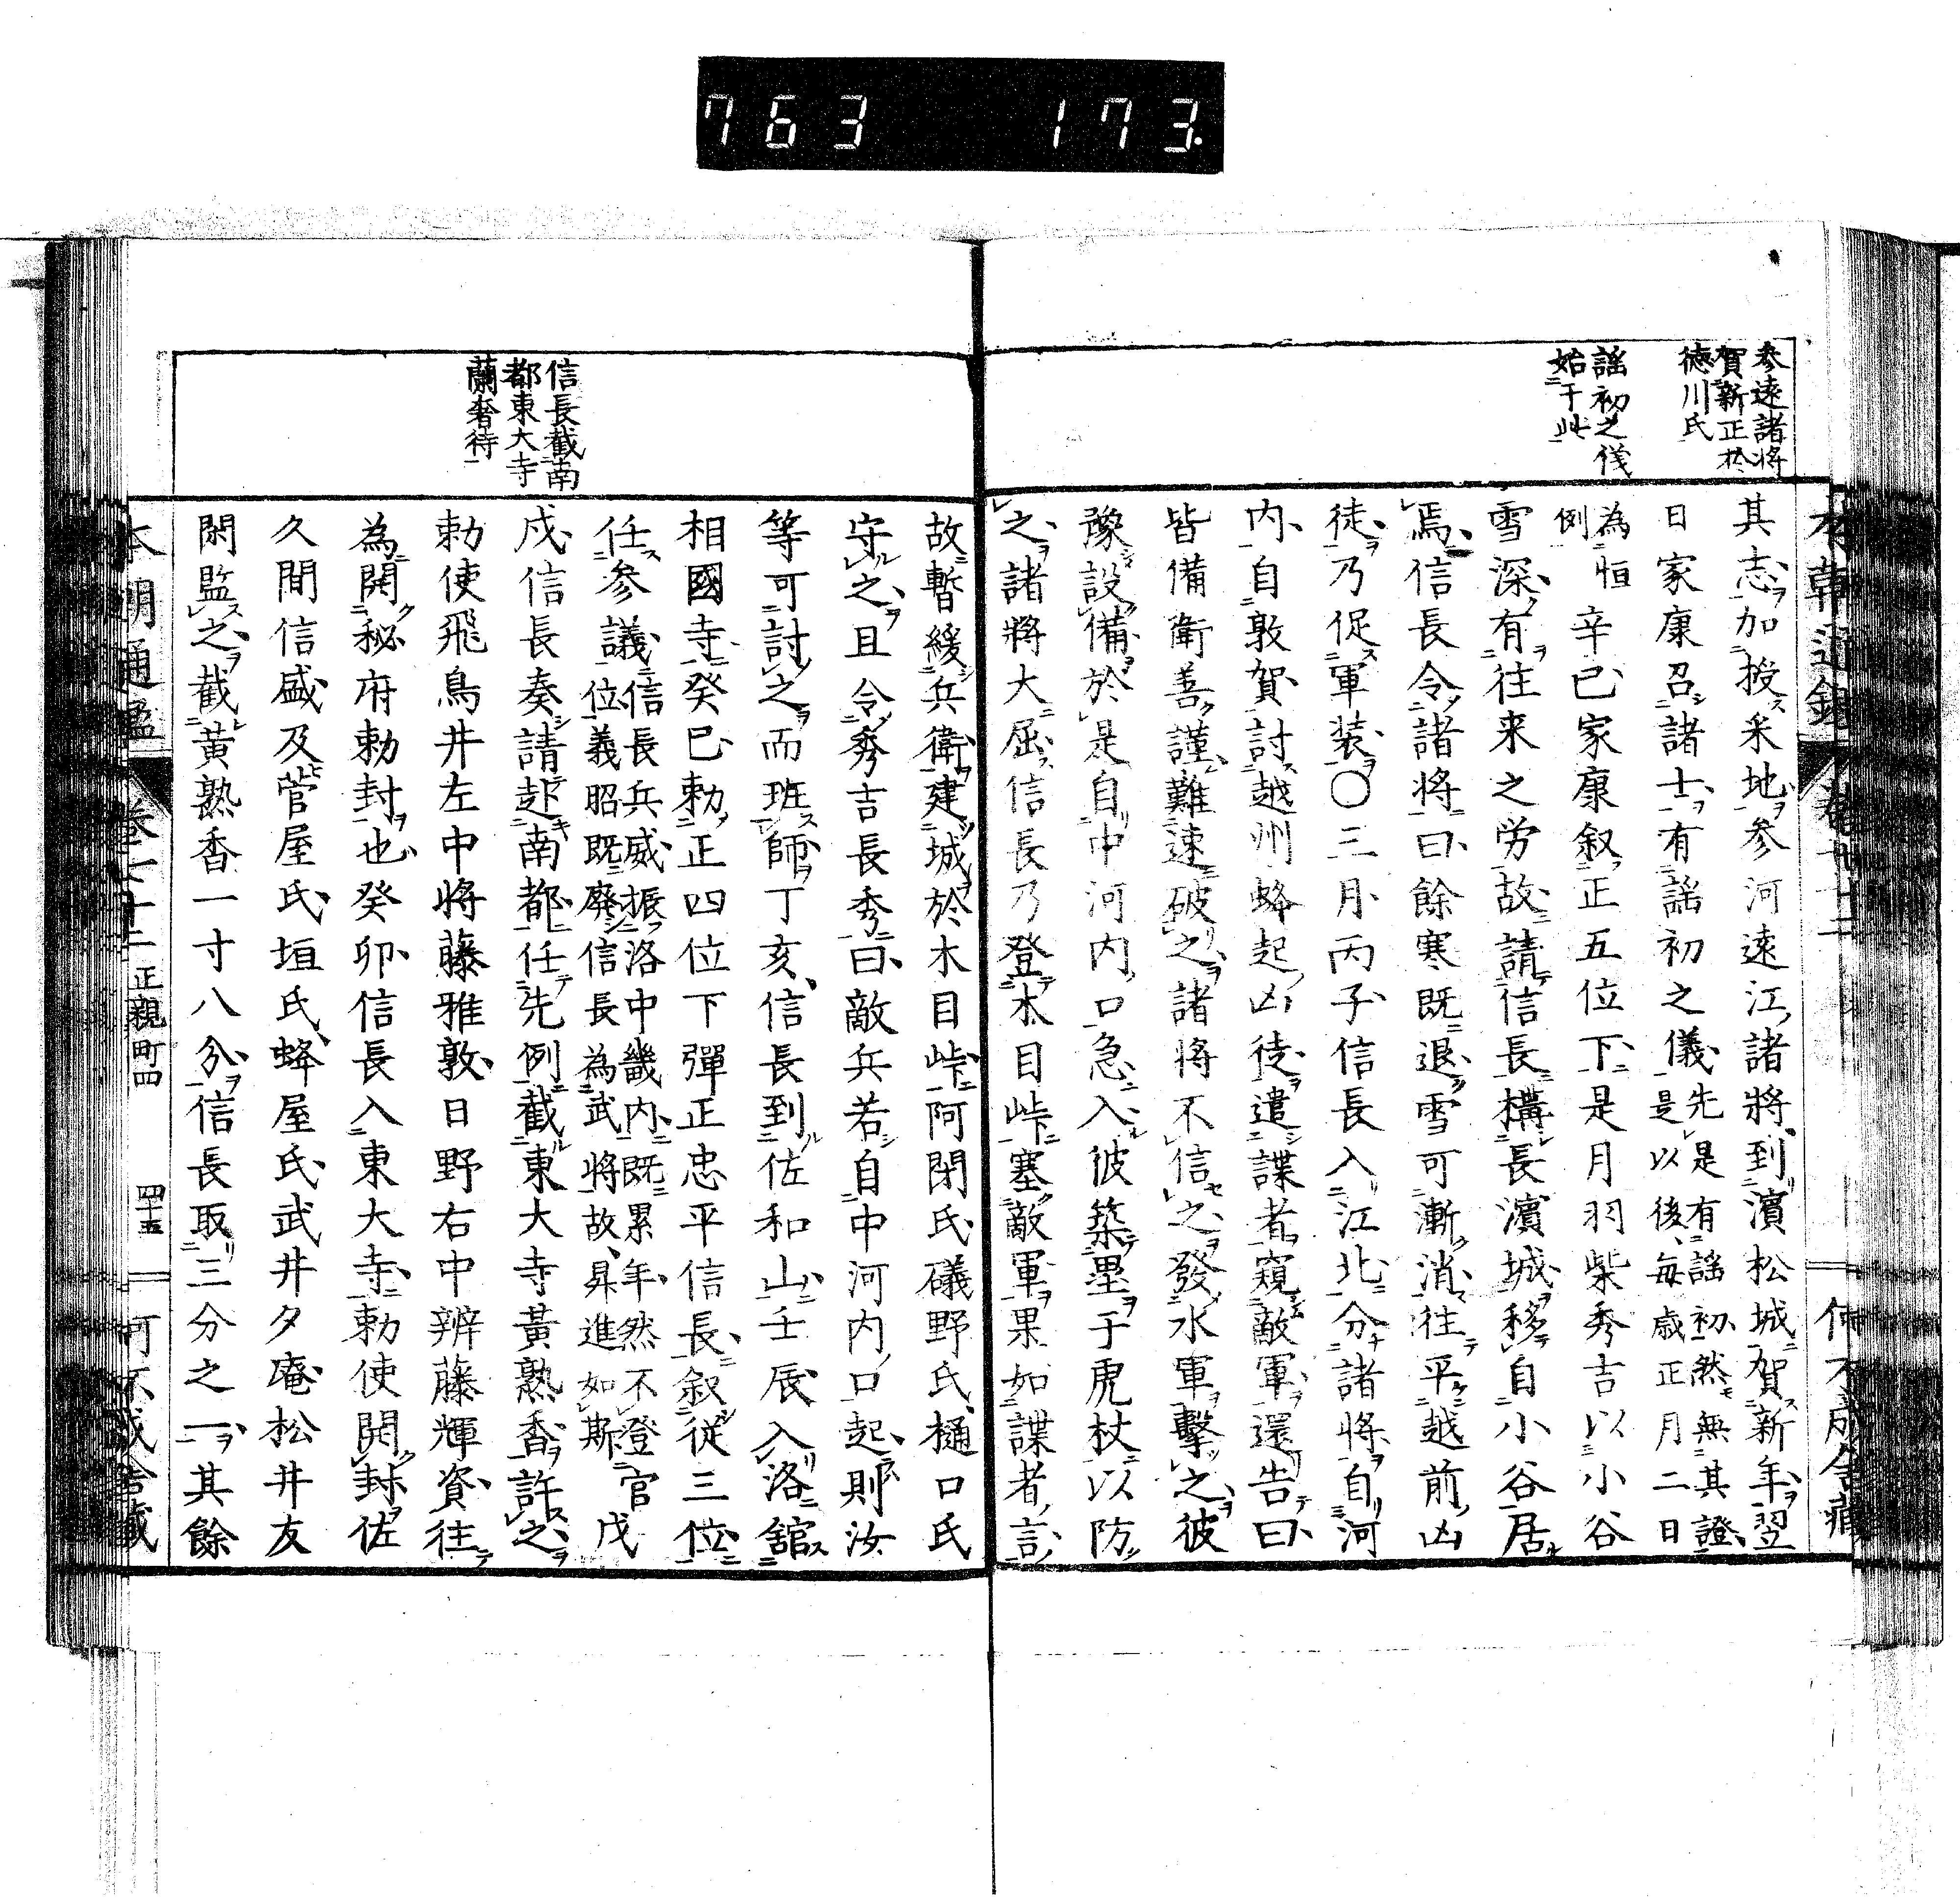 763 173.
参遠諸將
賀新正於
德川氏
謡初之儀
始于此
其志加授釆地参河遠江諸將到濱松城賀新年翌
日家康召諸士有謡初之儀先是有謡初然無其證
是以後每歲正月二日
為恒
例
辛巳家康叙正五位下是月羽柴秀吉以小谷
雪深有往来之労故請信長構長濱城移自小谷居
焉信長令諸將曰餘寒既退雪可漸消往平越前凶
徒乃促軍装〇三月丙子信長入江北分諸將自河
內自敦賀討越州蜂起凶徒遣諜者窺敵軍還告曰
皆備衛善謹難速破之諸將不信之發水軍擊之彼
豫設備於是自中河內口急入彼築壘于虎杖以防
之諸將大屈信長乃登木目峠塞敵軍果如諜者言
信長截南
都東大寺
蘭奢待
故暫緩兵衛建城於木目峠阿閉氏礒野氏樋口氏
守之且令秀吉長秀曰敵兵若自中河內口起則汝
等可討之而班師丁亥信長到佐和山壬辰入洛舘
相國寺癸巳勅正四位下彈正忠平信長叙從三位
任參議信長兵威振洛中畿内既累年然不登官
位義昭既廢信長為武將故昇進如斯
戊
戌信長奏請赴南都任先例截東大寺黃熟香許之
勅使飛鳥井左中將藤雅敦日野右中辨藤輝資往
為開秘府勅封也癸卯信長入東大寺勅使開封佐
久間信盛及菅屋氏垣氏蜂屋氏武井夕庵松井友
閑監之截黃熟香一寸八分信長取三分之一其餘
本朝通鑑 卷七十二 正親町四 四十五